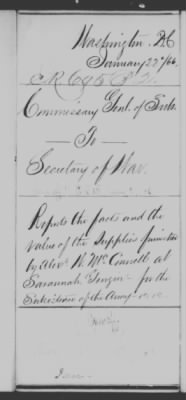 Washington, D.C.
January 27/66
Commissary Genl. of Subs.
To
Secretary of War.
Reports the facts and the
value of the Supplies furnished
by Alexr. R. McConnell at
Savannah Georgia - for the
Subsistence of the Army